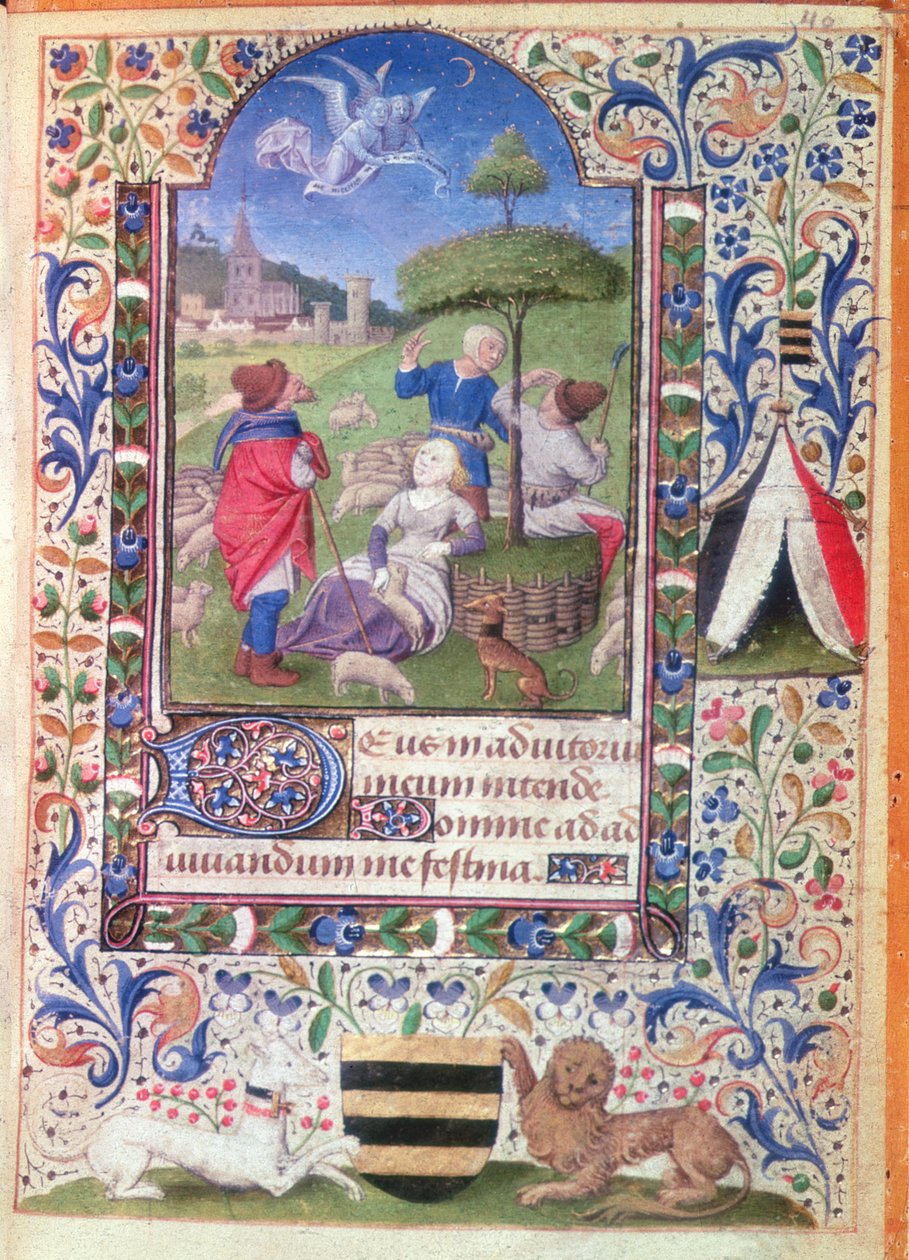 40
Deus in adiutoriu
meum intende
Domine ad ad
iuuandum me festina.